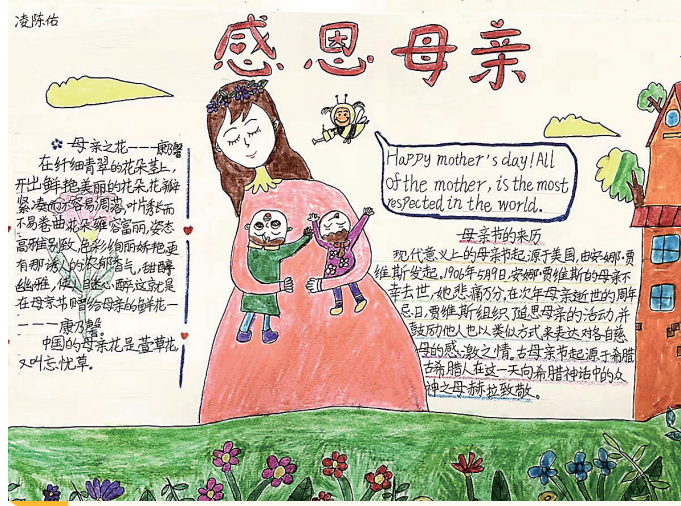 凌陈佑
感恩母亲
母亲之花———康乃馨
在纤细青翠的花朵茎上,
开出鲜艳美丽的花朵,花瓣
紧凑而不容易凋落,叶秀长而
不易卷曲,花朵雍容富丽,姿态
高雅别致,色彩绚丽娇艳更
有那诱人的浓郁香气,甜醇
幽雅,使人目迷心醉,这就是
在母亲节赠给母亲的鲜花—
———康乃馨。
中国的母亲花是萱草花,
又叫忘忧草。
Happy mother's day! All
of the mother, is the most
respected in the world.
母亲节的来历
现代意义上的母亲节起源于美国,由安娜·贾
维斯发起,1906年5月9日,安娜·贾维斯的母亲不
幸去世,她悲痛万分,在次年母亲逝世的周年
忌日,贾维斯组织了追思母亲的活动,并
鼓励他人也以类似方式来表达对各自慈
母的感激之情。古母亲节起源于希腊
古希腊人在这一天向希腊神话中的众
神之母赫拉致敬。